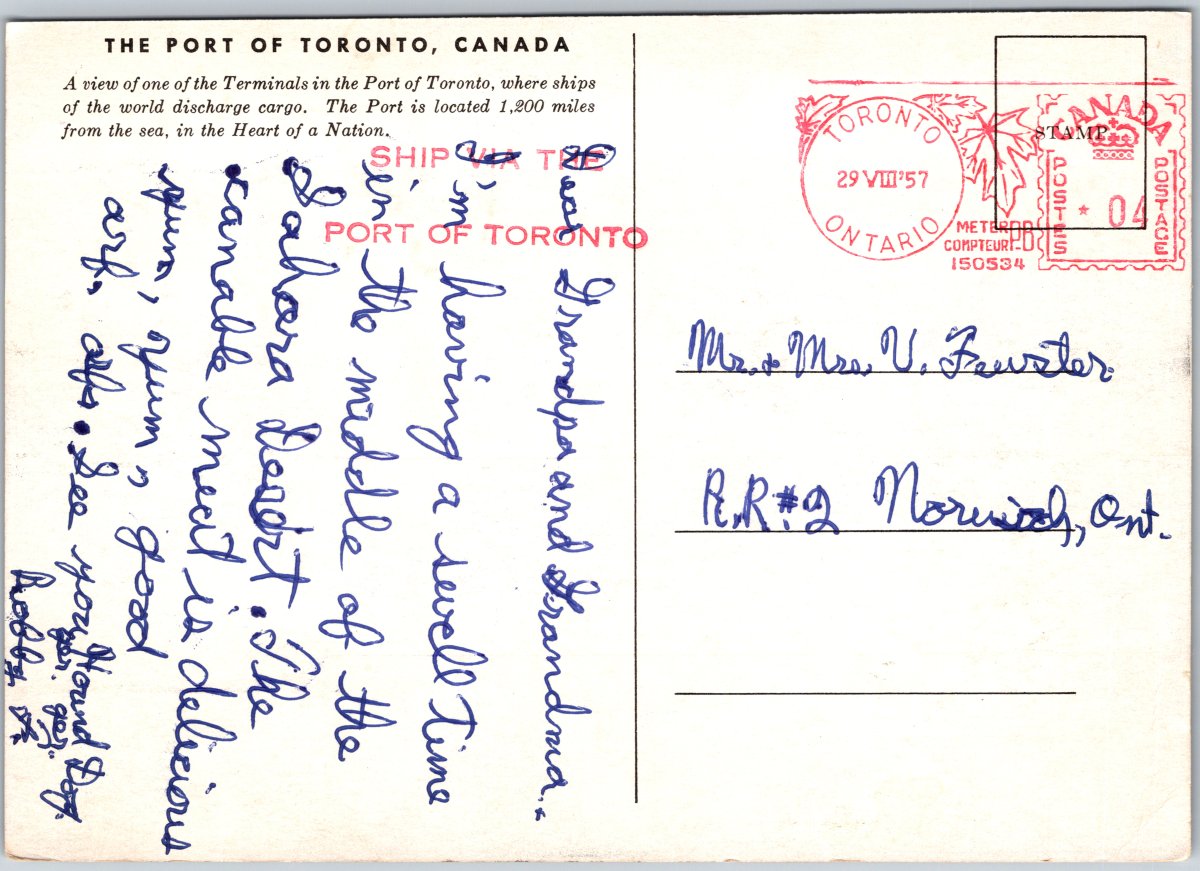 THE PORT OF TORONTO, CANADA
A view of one of the Terminals in the Port of Toronto, where ships
of the world discharge cargo. The Port is located 1,200 miles
from the sea, in the Heart of a Nation.
SHIP VIA THE
PORT OF TORONTO
Dear Grandpa and Grandma.
I'm having a swell time
in the middle of the
Sahara Desert. The
canable meat is delicious
yum, yum, good
arf, arf. See you Hound Dog.
Robby
STAMP
TORONTO
29 VIII '57
ONTARIO
METER PB
COMPTEUR
150534
CANADA
POSTES
04
POSTAGE
Mr. & Mrs. V. Fewster.
R.R. #2 Norwich, Ont.